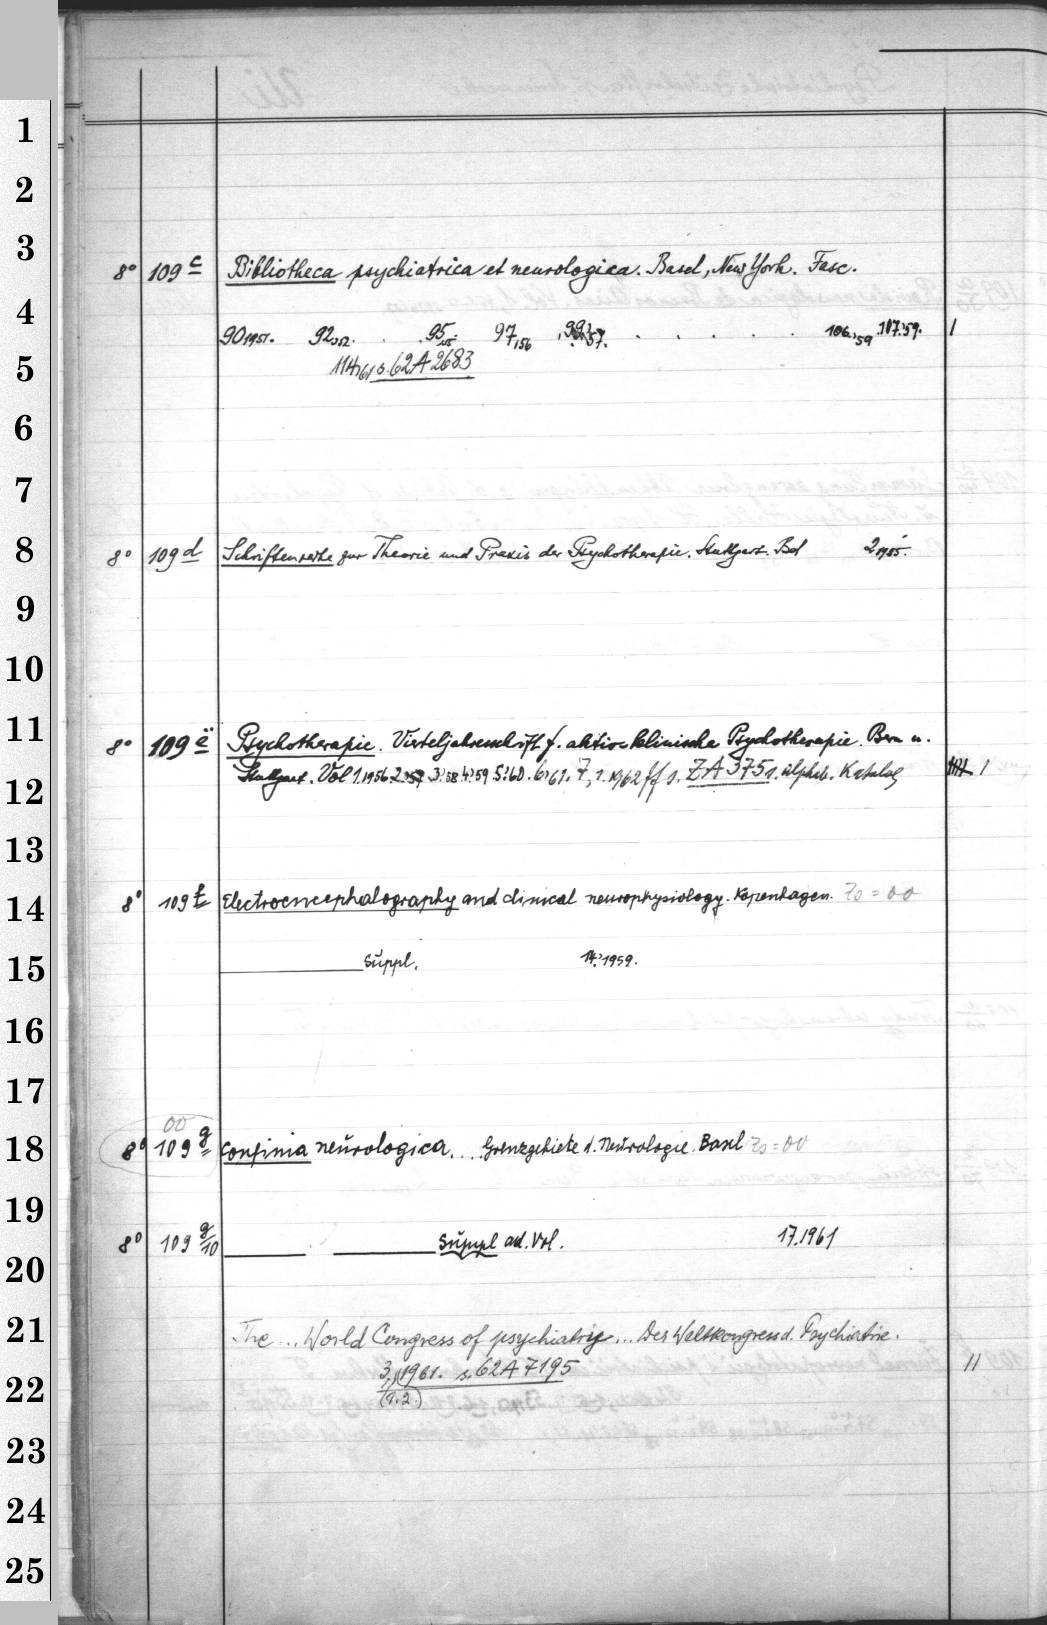 1
2
3
8° 109 c Bibliotheca psychiatrica et neurologica. Basel, New York. Fasc.
4
90,1951. 92,'52. . . 95,'55. 97,'56 . . . . . . 106,'59. 107,'59. I
5
114,'61 s. 62 A 2683
6
7
8
8° 109 d Schriftenreihe zur Theorie und Praxis der Psychotherapie. Stuttgart. Bd 2
9
10
11
8° 109 e Psychotherapie. Vierteljahresschrift f. aktive klinische Psychotherapie. Bern u.
Stuttgart. Vol 1.1956. 2.'57 3.'58 4.'59 5.'60. 6.'61. 7, 1.1962 ff s. ZA 3751. alphab. Katalog I
12
13
8° 109 f Electroencephalography and clinical neurophysiology. Kopenhagen. Zo = 00
14
Suppl. 14.1959.
15
16
17
00
18
8° 109 g Confinia neurologica . . . Grenzgebiete d. Neurologie. Basel Zo = 00
19
8° 109 g/10 Suppl ad. Vol. 17.1961
20
21
The ... World Congress of psychiatry ... Der Weltkongress d. Psychiatrie.
3, 1961. s. 62 A 7195 II
22
(1.2.)
23
24
25